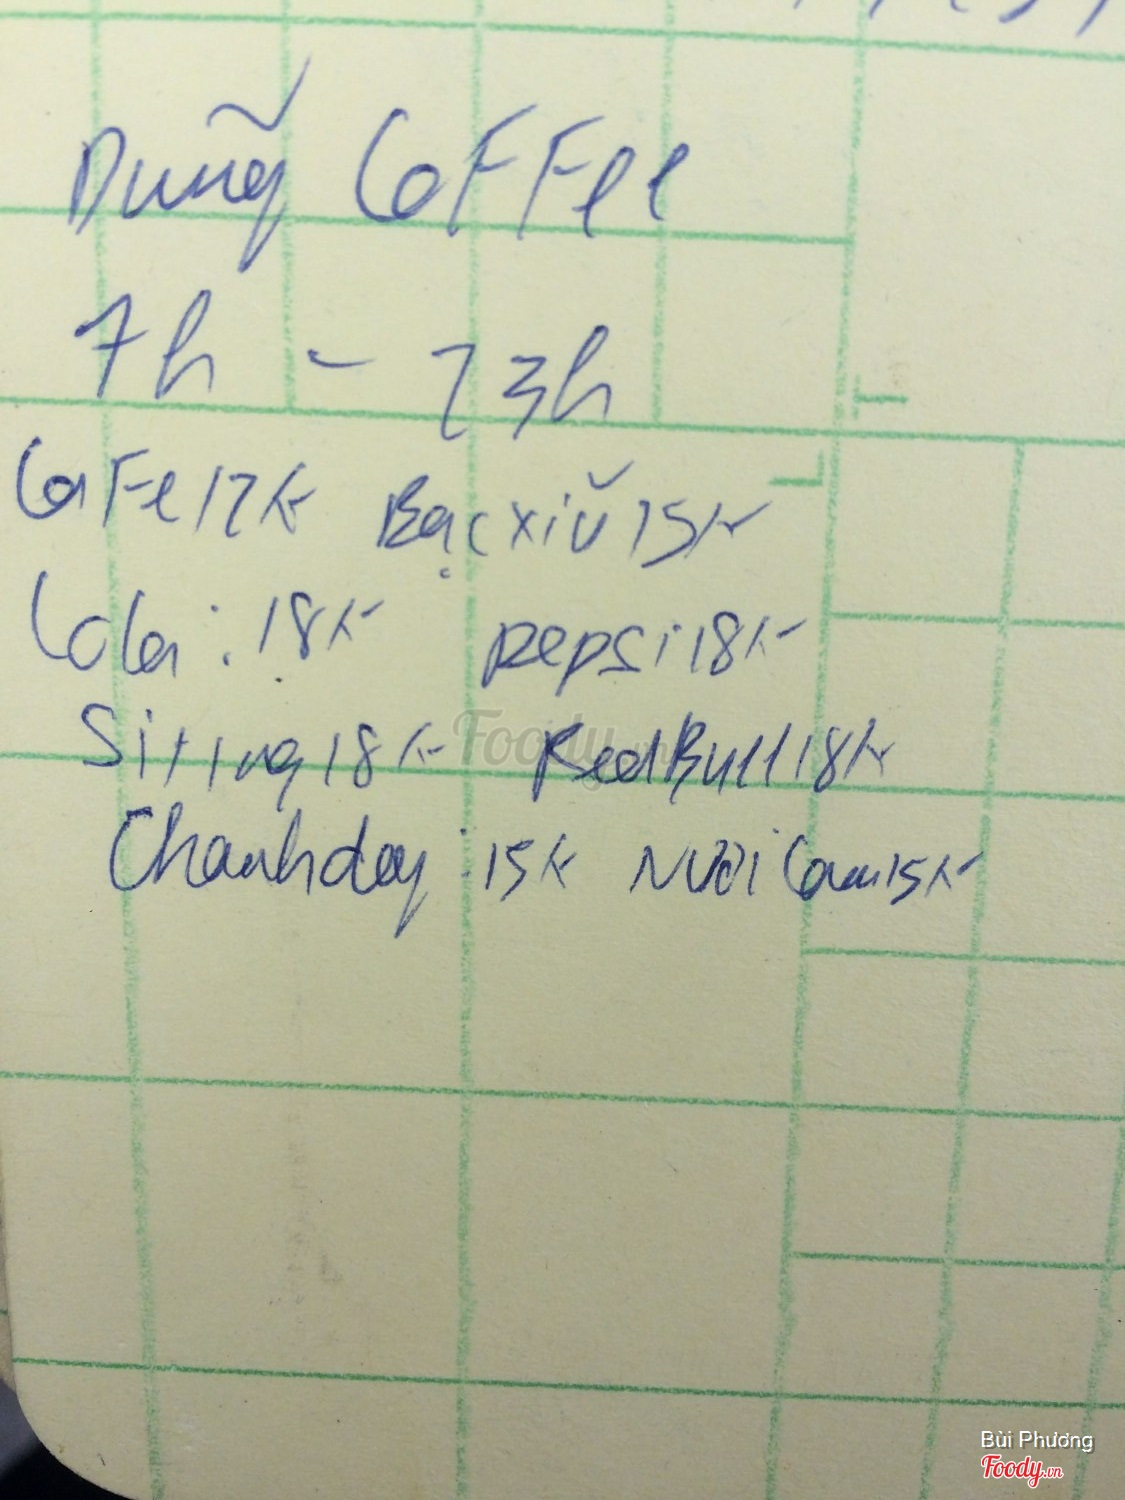 Dũng CoFFee
7h - 23h
CaFe 12K Bạc xiŭ 15K
Cola: 18K pepsi 18K
Sitting 18K Red Bull 18K
Foody.vn
Chanh day: 15K Nười Cam 15K
Bùi Phương
Foody.vn